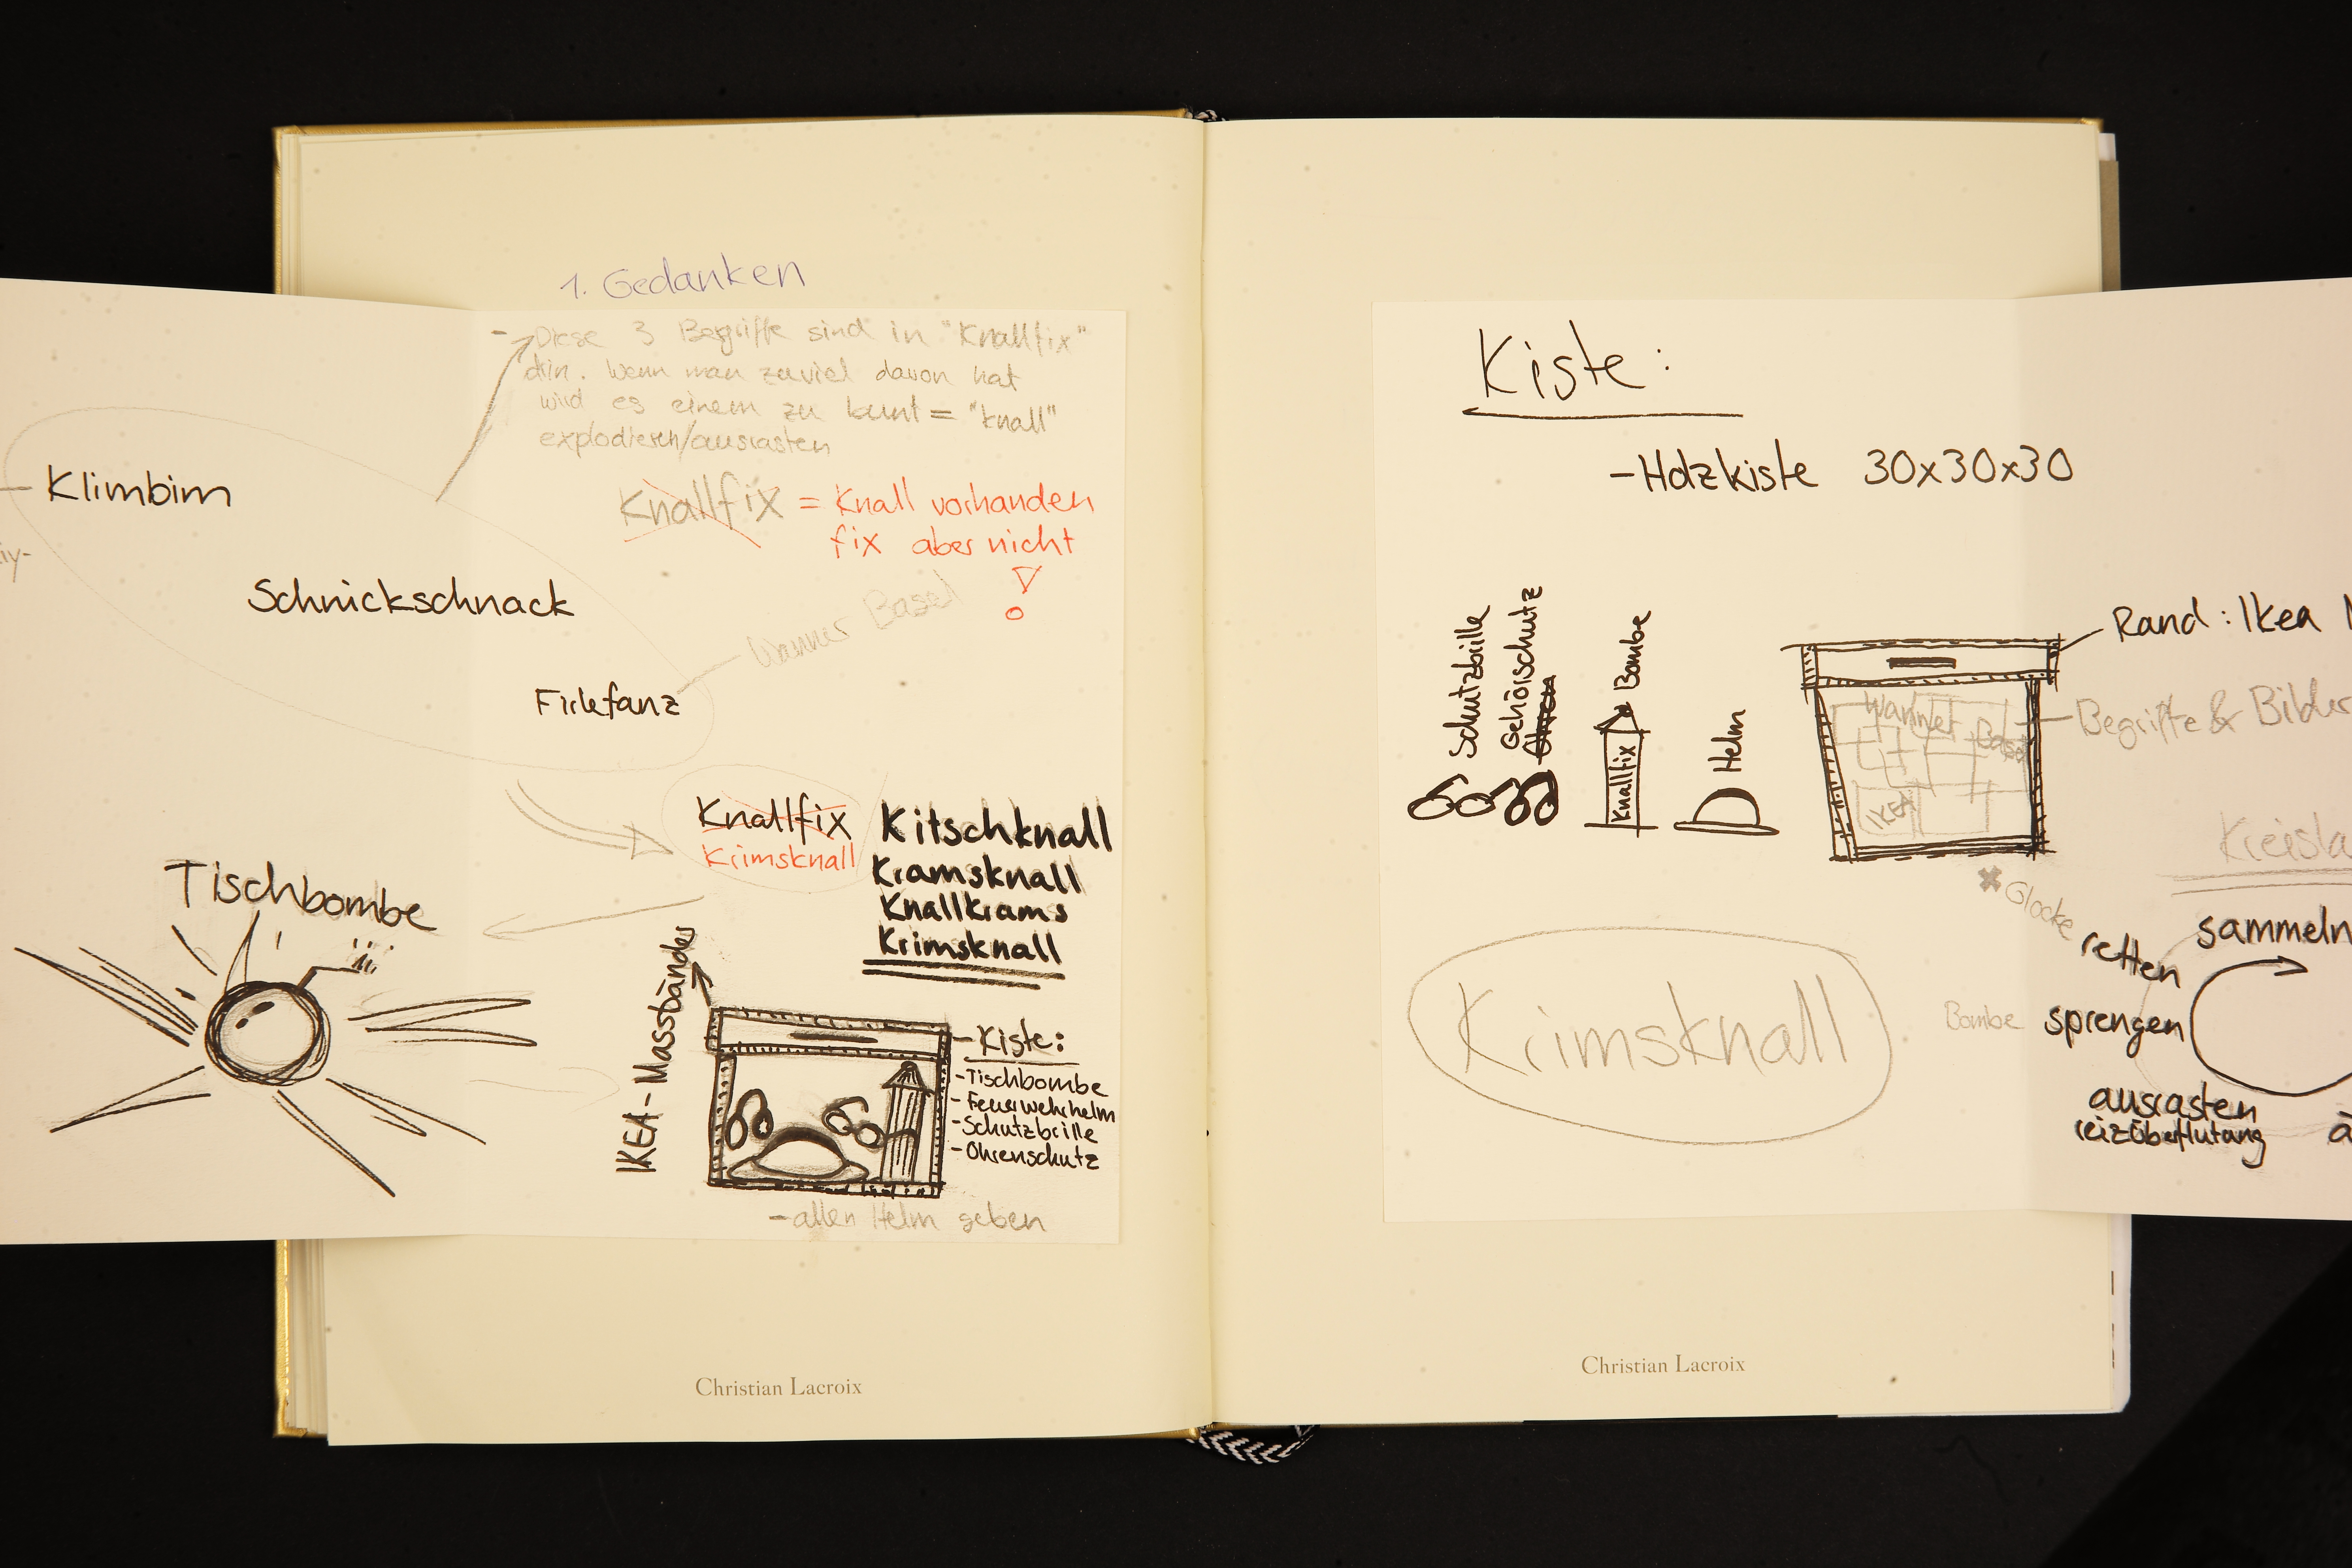 1. Gedanken
- Diese 3 Begriffe sind in "Knallfix"
drin. Wenn man zuviel davon hat
wird es einem zu bunt = "Knall"
explodieren/ausrasten
Knallfix = Knall vorhanden
fix aber nicht
!
Klimbim
Schnickschnack
Firlefanz
Wanner Basel
Knallfix
Krimsknall
Kitschknall
Kramsknall
Knallkrams
Krimsknall
Tischbombe
IKEA-Massbänder
- Kiste:
- Tischbombe
- Feuerwehrhelm
- Schutzbrille
- Ohrenschutz
- allen Helm geben
Christian Lacroix
Kiste:
- Holzkiste 30x30x30
Schutzbrille
Gehörschutz
Ohren
Bombe
Knallfix
Helm
Rand: Ikea
Wanner Basel
IKEA
Begriffe & Bilder
Glocke
Krimsknall
sammeln
retten
Bombe sprengen
ausrasten
reizüberflutung
Christian Lacroix